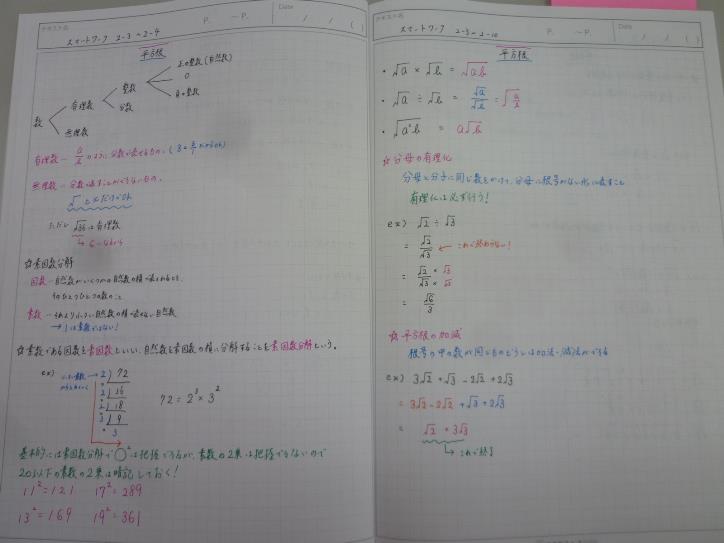 テキスト名
スマートワーク 2-3~2-4
P. ~P.
Date
/ / ( )
平方根
数
有理数
無理数
整数
分数
正の整数(自然数)
0
負の整数
有理数 … a/b のように分数で表せるもの。(3=3/1 だからOK)
無理数 … 分数で表すことができないもの。
√ とπだけでOK
ただし √36 は有理数
↳ 6
☆素因数分解
因数 … 自然数がいくつかの自然数の積で表されるとき、
そのひとつひとつの数のこと
素数 … それより小さい自然数の積で表せない自然数
→ 1は素数ではない!
☆素数である因数を素因数といい、自然数を素因数の積に分解することを素因数分解という。
ex)
小さい素数
→ 2) 72
2) 36
2) 18
3) 9
3
72 = 2³ × 3²
基本的には素因数分解で○²は把握できるが、素数の2乗は把握できないので
20以下の素数の2乗は暗記しておく!
11²=121 17²=289
13²=169 19²=361
テキスト名
スマートワーク 2-5~2-10
P. ~P.
Date
/ / ( )
平方根
・√a × √b = √ab
・√a ÷ √b = √a/√b = √(a/b)
・√(a²b) = a√b
☆分母の有理化
分母と分子に同じ数をかけて、分母に根号がない形に直すこと
有理化は必ず行う!
ex) √2 ÷ √3
= √2/√3 ← これで終わらない!
= √2/√3 × √3/√3
= √6/3
☆平方根の加減
根号の中の数が同じものどうしは加法・減法ができる
ex) 3√2 + √3 - 2√2 + 2√3
= 3√2 - 2√2 + √3 + 2√3
= √2 + 3√3
↳ これで終了